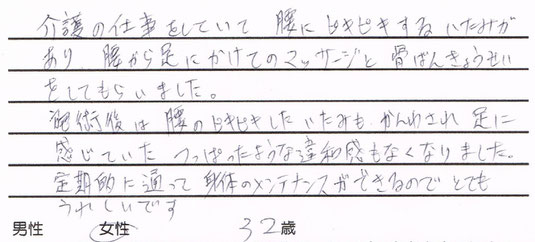 介護の仕事をしていて 腰にピキピキするいたみが
あり 腰から足にかけてのマッサージと 骨ばんきょうせい
をしてもらいました。
施術後は 腰のピキピキしたいたみも かんわされ 足に
感じていた つっぱったような違和感もなくなりました。
定期的に通って 身体のメンテナンスができるので とても
うれしいです
男性 女性 32歳